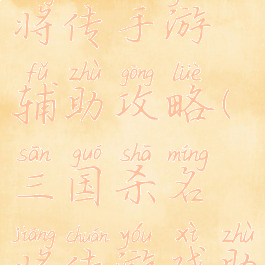 将传手游
fǔ zhù gōng lüè
辅助攻略(
sān guó shā míng
三国杀名
jiàng chuán yóu xì zhù
将传游戏助